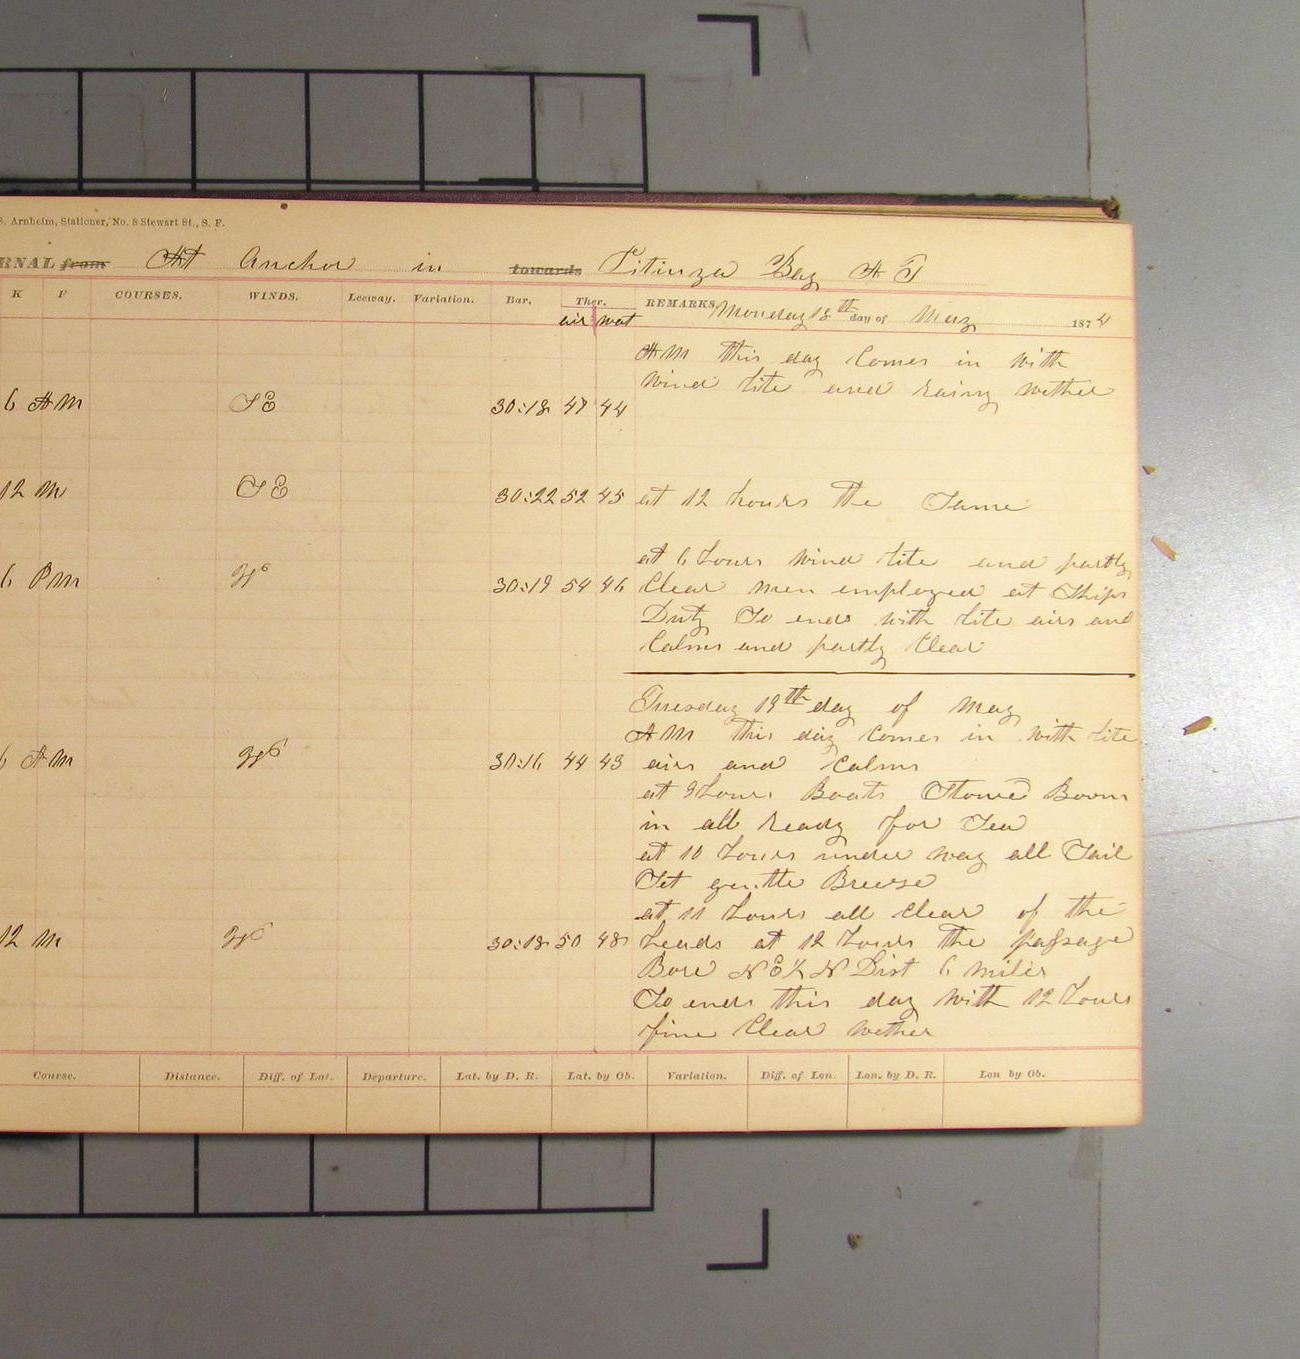 S. Arnheim, Stationer, No. 8 Stewart St., S. F.
RNAL from At Anchor in towards Litinza Bay A T
K F COURSES. WINDS. Leeway. Variation. Bar. Ther. REMARKS, Monday 18th day of May 1874
air wat
AM this day Comes in with
wind lite and rainy wether
6 AM SE 30:18 47 44
12 M SE 30:22 52 45 at 12 hours the Same
at 6 hours wind lite and partly
6 PM 30:19 54 46 Clear men employed at Ships
Duty So ends with lite airs and
Calms and partly Clear
Tuesday 19th day of May
AM this day Comes in with lite
6 AM 30:16 44 43 airs and Calms
at 9 hours Boats Stowed Boom
in all ready for Sea
at 10 hours under way all Sail
Set gentle Breese
at 11 hours all clear of the
12 M 30:18 50 48 heads at 12 hours the passage
Bore N E½ N Dist 6 miles
So ends this day with 12 hours
fine Clear wether
Course. Distance. Diff. of Lat. Departure. Lat. by D. R. Lat. by Ob. Variation. Diff. of Lon. Lon. by D. R. Lon by Ob.